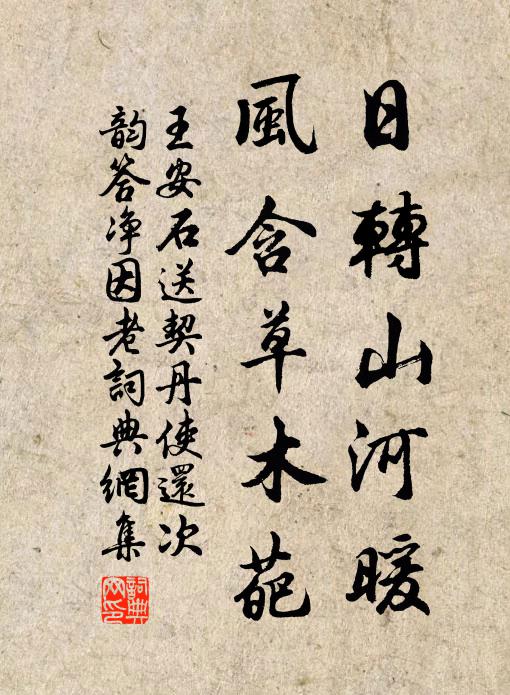 日轉山河暖
風含草木葩
王安石送契丹使還次
韵答净因老詞典網集
詞典網印